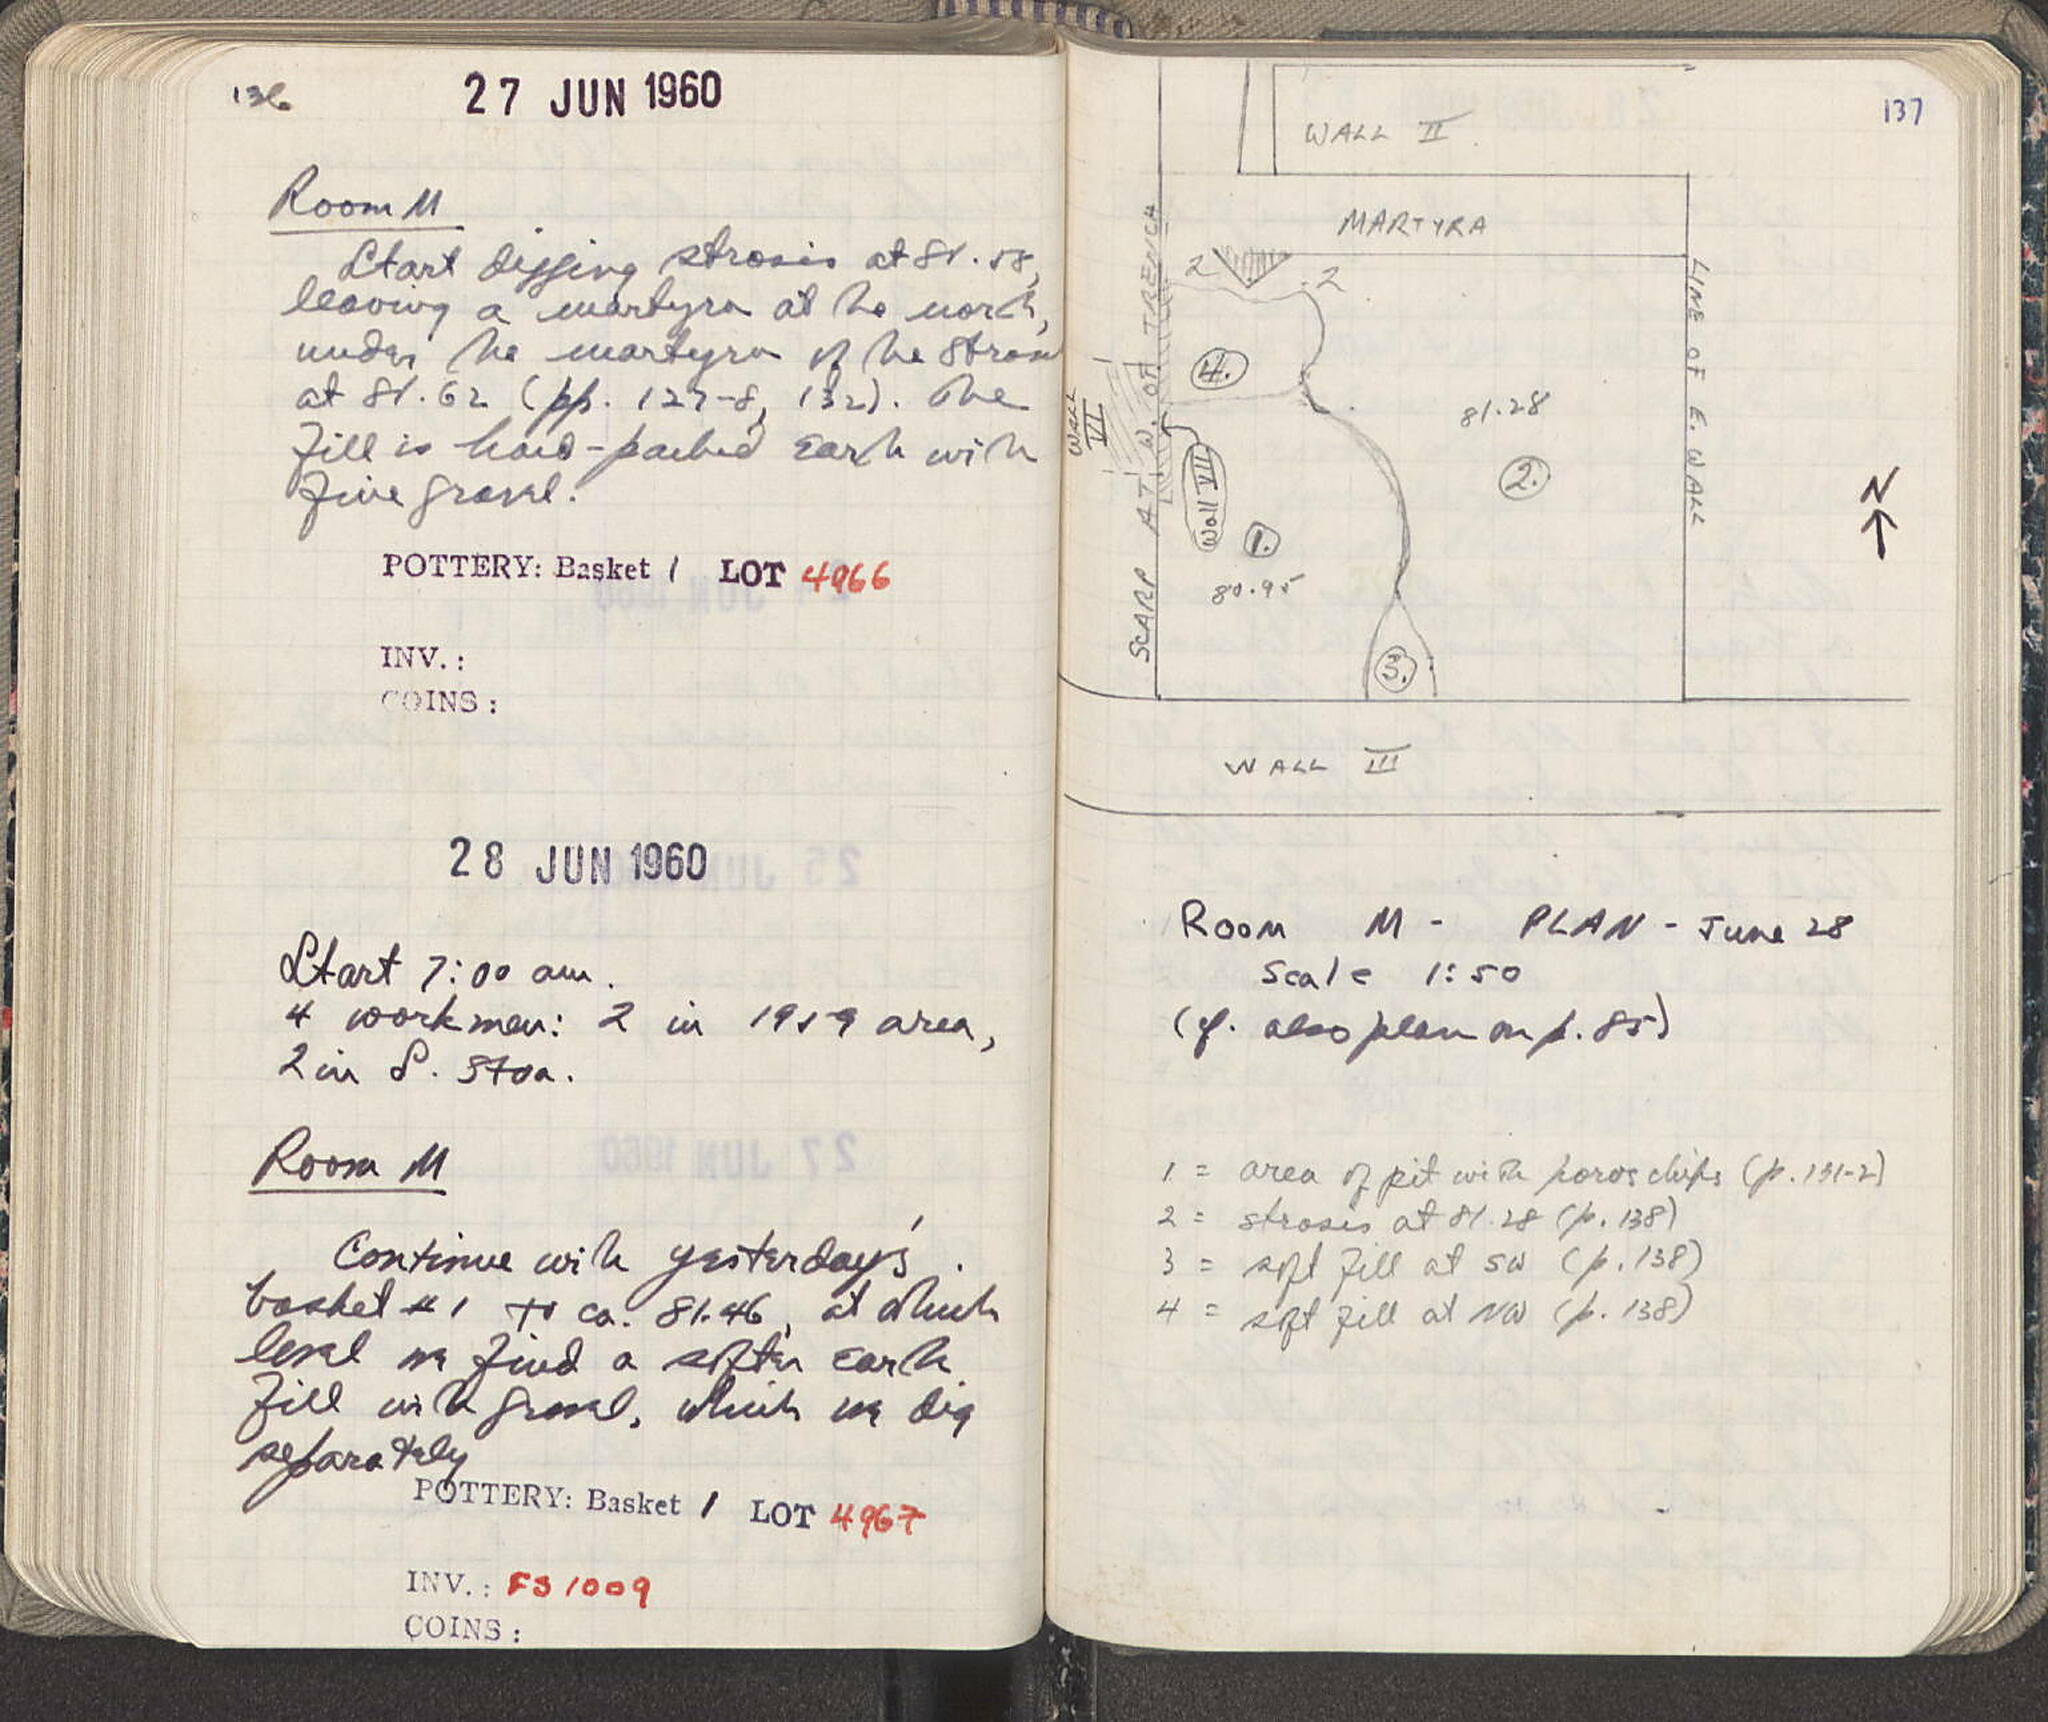 136
27 JUN 1960
Room M
Start digging strosis at 81.58,
leaving a martyra at the north,
under the martyra of the strosis
at 81.62 (pp. 127-8, 132). The
fill is hard-packed earth with
fine gravel.
POTTERY: Basket 1 LOT 4966
INV.:
COINS:
28 JUN 1960
Start 7:00 am.
4 workmen: 2 in 1959 area,
2 in S. Stoa.
Room M
Continue with yesterday's
basket #1 to ca. 81.46, at which
level we find a softer earth
fill with gravel, which we dig
separately
POTTERY: Basket 1 LOT 4967
INV.: FS 1009
COINS:
137
WALL II
MARTYRA
2 2
SCARP AT W. OF TRENCH
LINE OF E. WALL
WALL VI
4.
81.28
2.
Wall VII
1.
80.95
N
3.
WALL III
Room M - PLAN - June 28
Scale 1:50
(cf. also plan on p. 85)
1 = area of pit with poros chips (p. 131-2)
2 = strosis at 81.28 (p. 138)
3 = soft fill at SW (p. 138)
4 = soft fill at NW (p. 138)